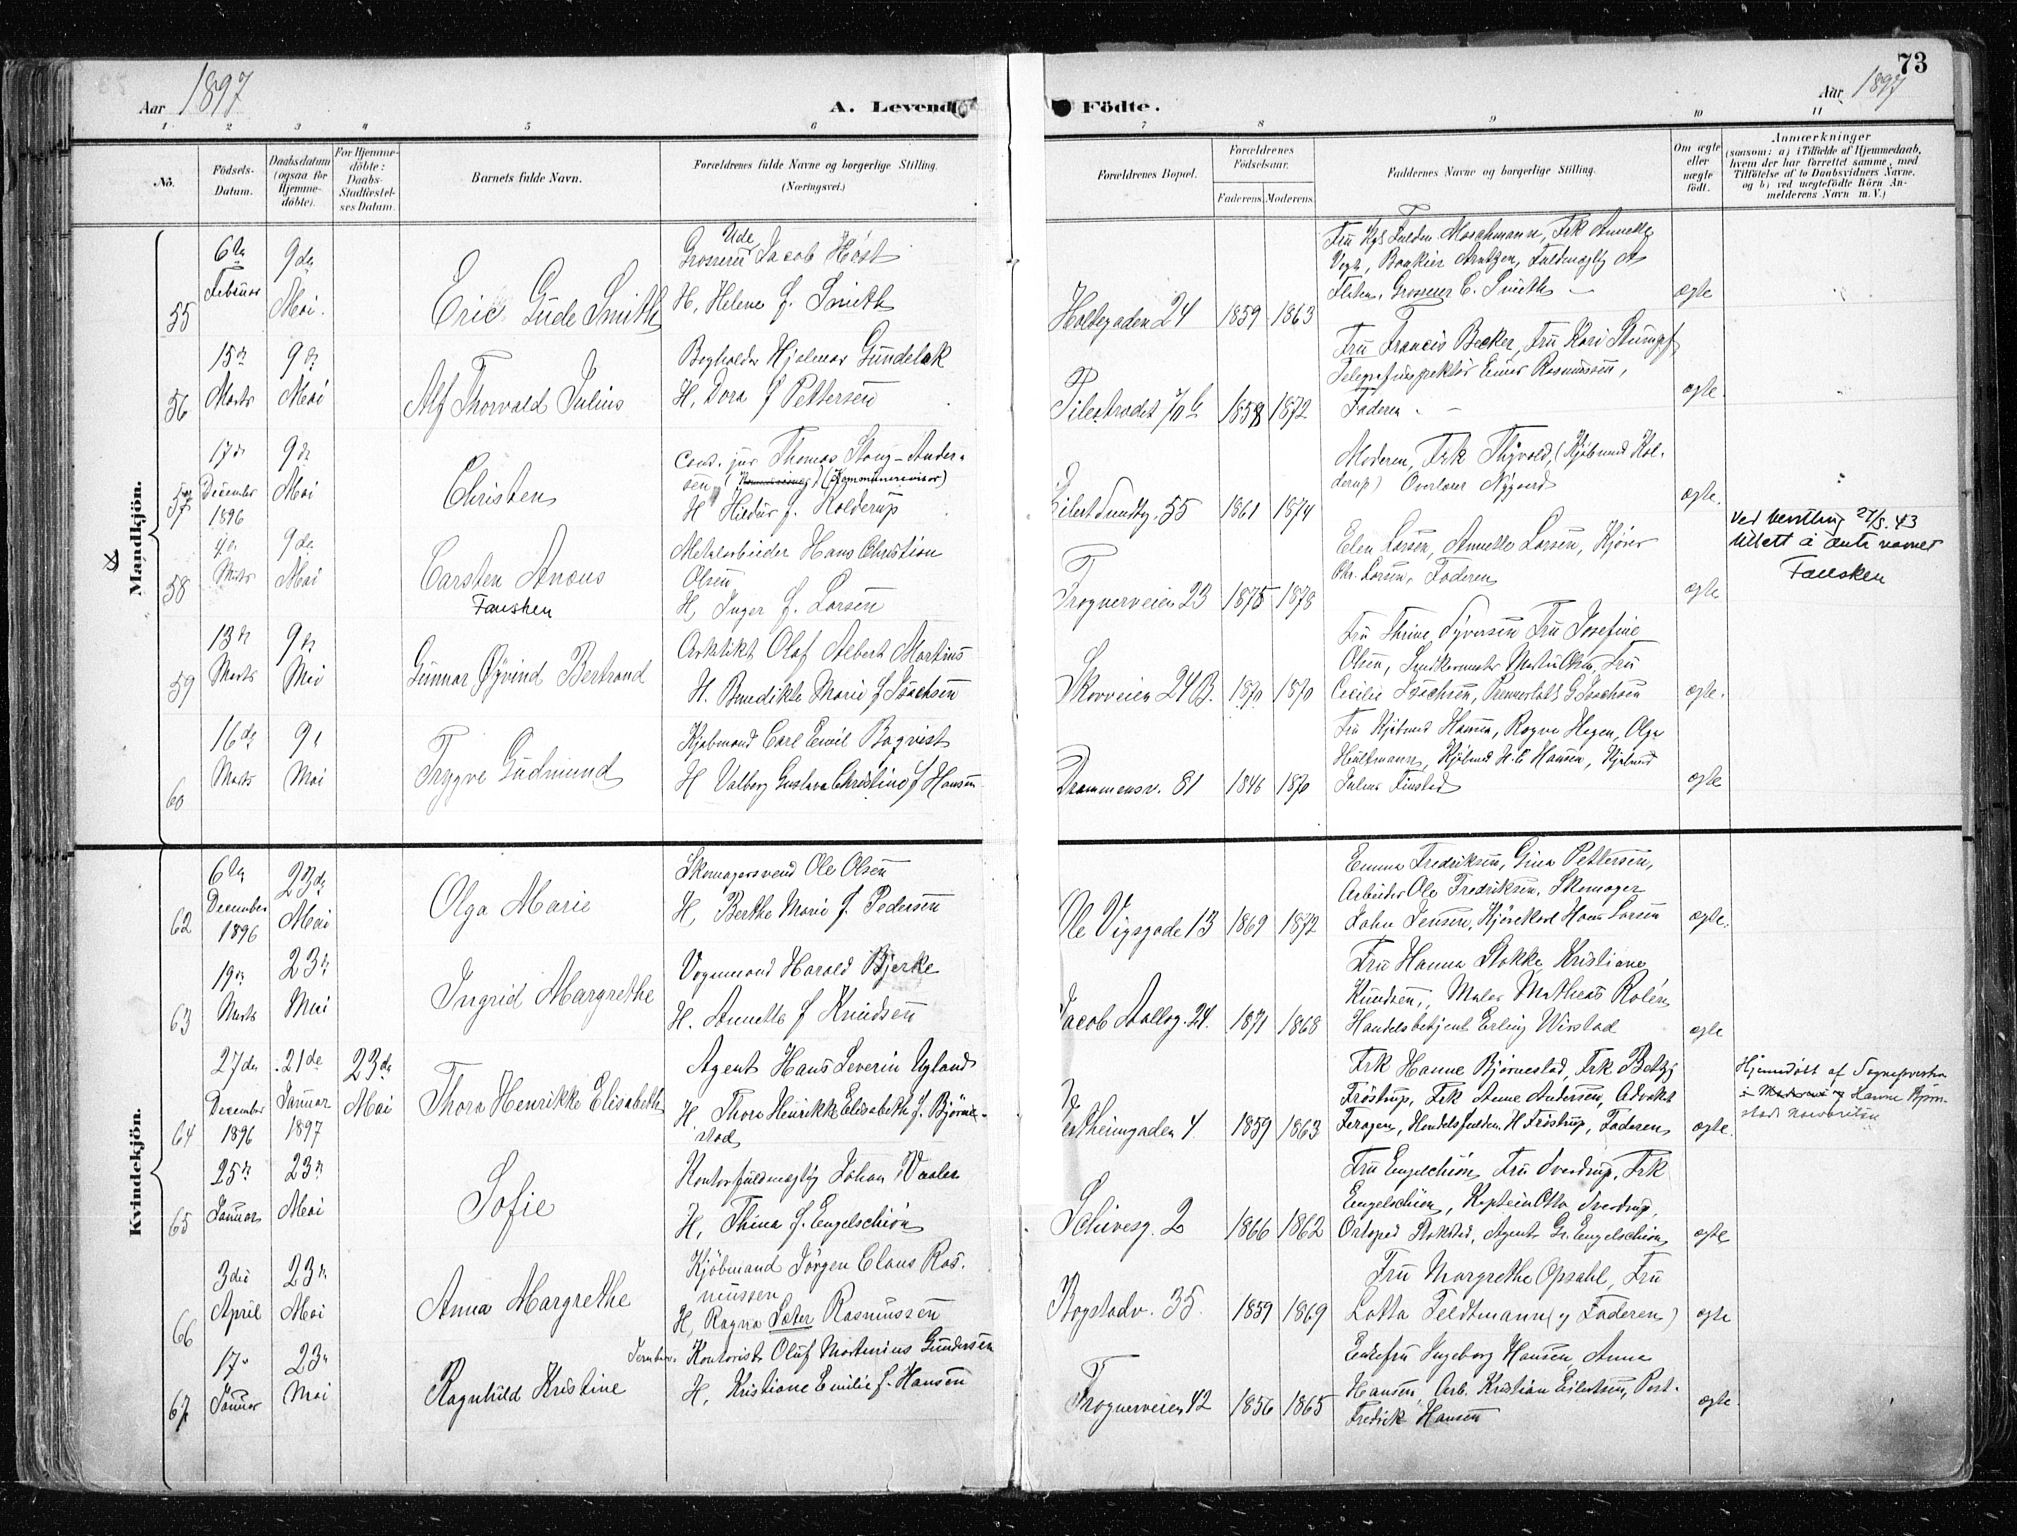 73
Aar 1897
A. Levende
Födte.
Aar 1897
1 2 3 4 5 6 7 8 9 10 11
No.
Födsels-Datum.
Daabsdatum (ogsaa for Hjemmedöbte).
For Hjemmedöbte: Daabs-Stadfæstelses Datum.
Barnets fulde Navn.
Forældrenes fulde Navne og borgerlige Stilling. (Næringsvei.)
Forældrenes Bopæl.
Forældrenes Födselsaar.
Faderens. Moderens.
Faddernes Navne og borgerlige Stilling.
Om ægte eller uægte födt.
Anmærkninger
(saasom: a) i Tilfælde af Hjemmedaab, hvem der har forrettet samme, med Tilföielse af to Daabsvidners Navne, og b) ved uægtefödte Börn Anmelderens Navn m. V.)
Mandkjön.
55 6te Februar 9de Mai.
Eric Gude Smith
Grosserer Jacob Høst
H, Helene f. Smith
Holtegaden 24 1859 1863
Grosserer C. Smith
ægte
56 15de Marts 9de Mai
Alf Thorvald Julius
Bogholder Hjalmar Gundelak
H, Dora f Pettersen
Pilestrædet 70 b 1858 1872
Fru Francis Becker, Fru Kari Stumpf
Telegrafinspektør Einar Rasmussen,
Faderen
ægte
57 17de December 1896 9de Mai
Christen
Cand. jur Thomas Stang-Andersen (Kommunerevisor)
H Hildur f. Kolderup
Eilert Sundtsg. 55 1861 1874
Moderen, Frk Thyvold, (Kjøbmand Kolderup) Overlærer Nygaard
ægte.
58 Marts 9de Mai
Carsten Anæus
Fausken
Metalarbeider Hans Christian
Olsen
H, Inger f. Larsen
Frognerveien 23 1875 1878
Elen Larsen, Annette Larsen, Kjører
Chr. Larsen, Faderen
ægte
Ved bevilling 27/5.43
tillatt å anta navnet
Fausken
59 13de Marts 9de Mai
Gunnar Øyvind Bertrand
Arkitekt Olaf Albert Martins
H. Benedikte Marie f Isachsen
Skovveien 24 B. 1870 1870
Fru Thrine Syversen Fru Josefine
Olsen, Snedkermester Martin Olsen, Fru
Cecilie Isachsen, Premierløit. G Isachsen
ægte.
60 16de Marts 9de Mai
Trygve Gudmund
Kjøbmand Carl Emil Boqvist
H Valborg Gustava Christine f Hansen
Drammensv. 81 1846 1870
Fru Kjøbmd Hanna, Ragna Hagen, Olga
Hultmann, Kjøbmd H. C Hansen, Kjøbmd
Julius Finstad
ægte
Kvindekjön.
62 6te December 1896 23de Mai
Olga Marie
Skomagersvend Ole Olsen
H, Berthe Marie f. Pedersen
Ole Vigsgade 13 1869 1872
Emma Fredriksen, Gina Pettersen,
Arbeider Ole Fredriksen, Skomager
John Jensen, Kjørekarl Hans Larsen
ægte.
63 19de Marts 23de Mai
Ingrid Margrethe
Vognmand Harald Bjerke
H. Annette f Knudsen
Jacob Aallsg. 24. 1871 1868
Fru Hanna Stokke Kristiane
Knudsen, Maler Matheas Rolén
Handelsbetjent Erling Wirstad
ægte
64 27de December 1896 21de Januar 1897 23de Mai
Thora Henrikke Elisabeth
Agent Hans Severin Ugland
H Thora Henrikke Elisabeth f. Bjørnestad
Vestheimgaden 4. 1859 1863
Frk Hanne Bjørnestad, Frk Betzy
Frøstrup, Frk Anne Andersen, Advokat
Feragen, Handelsfuldm. H Frøstrup, Faderen
ægte.
Hjemmedøbt af Sognepresten
65 25de Januar 23de Mai
Sofie
Kontorfuldmægtig Johan Vaaler
H, Thina f. Engelschiøn
Schivesg. 2 1866 1862
Fru Engelschiøn, Fru Sverdrup, Frk
Engelschiøn, Kaptein Otto Sverdrup,
Ortoped Stokstad, Agent Gr. Engelschiøn
ægte
66 3die April 23de Mai
Anna Margrethe
Kjøbmand Jørgen Claus Rasmussen
H, Ragna Sæter Rasmussen
Bogstadv. 35. 1859 1869
Fru Margrethe Opsahl, Fru
Lotta Feldtmann (og Faderen)
ægte
67 17de Januar 23de Mai
Ragnhild Kristine
Kontorist Oluf Martinius Gundersen
H, Kristiane Emilie f. Hansen
Frognerveien 42 1856 1865
Enkefru Ingeborg Hansen, Anna
Hansen, Arb. Kristian Eilertsen, Post.
Fredrik Hansen
ægte.